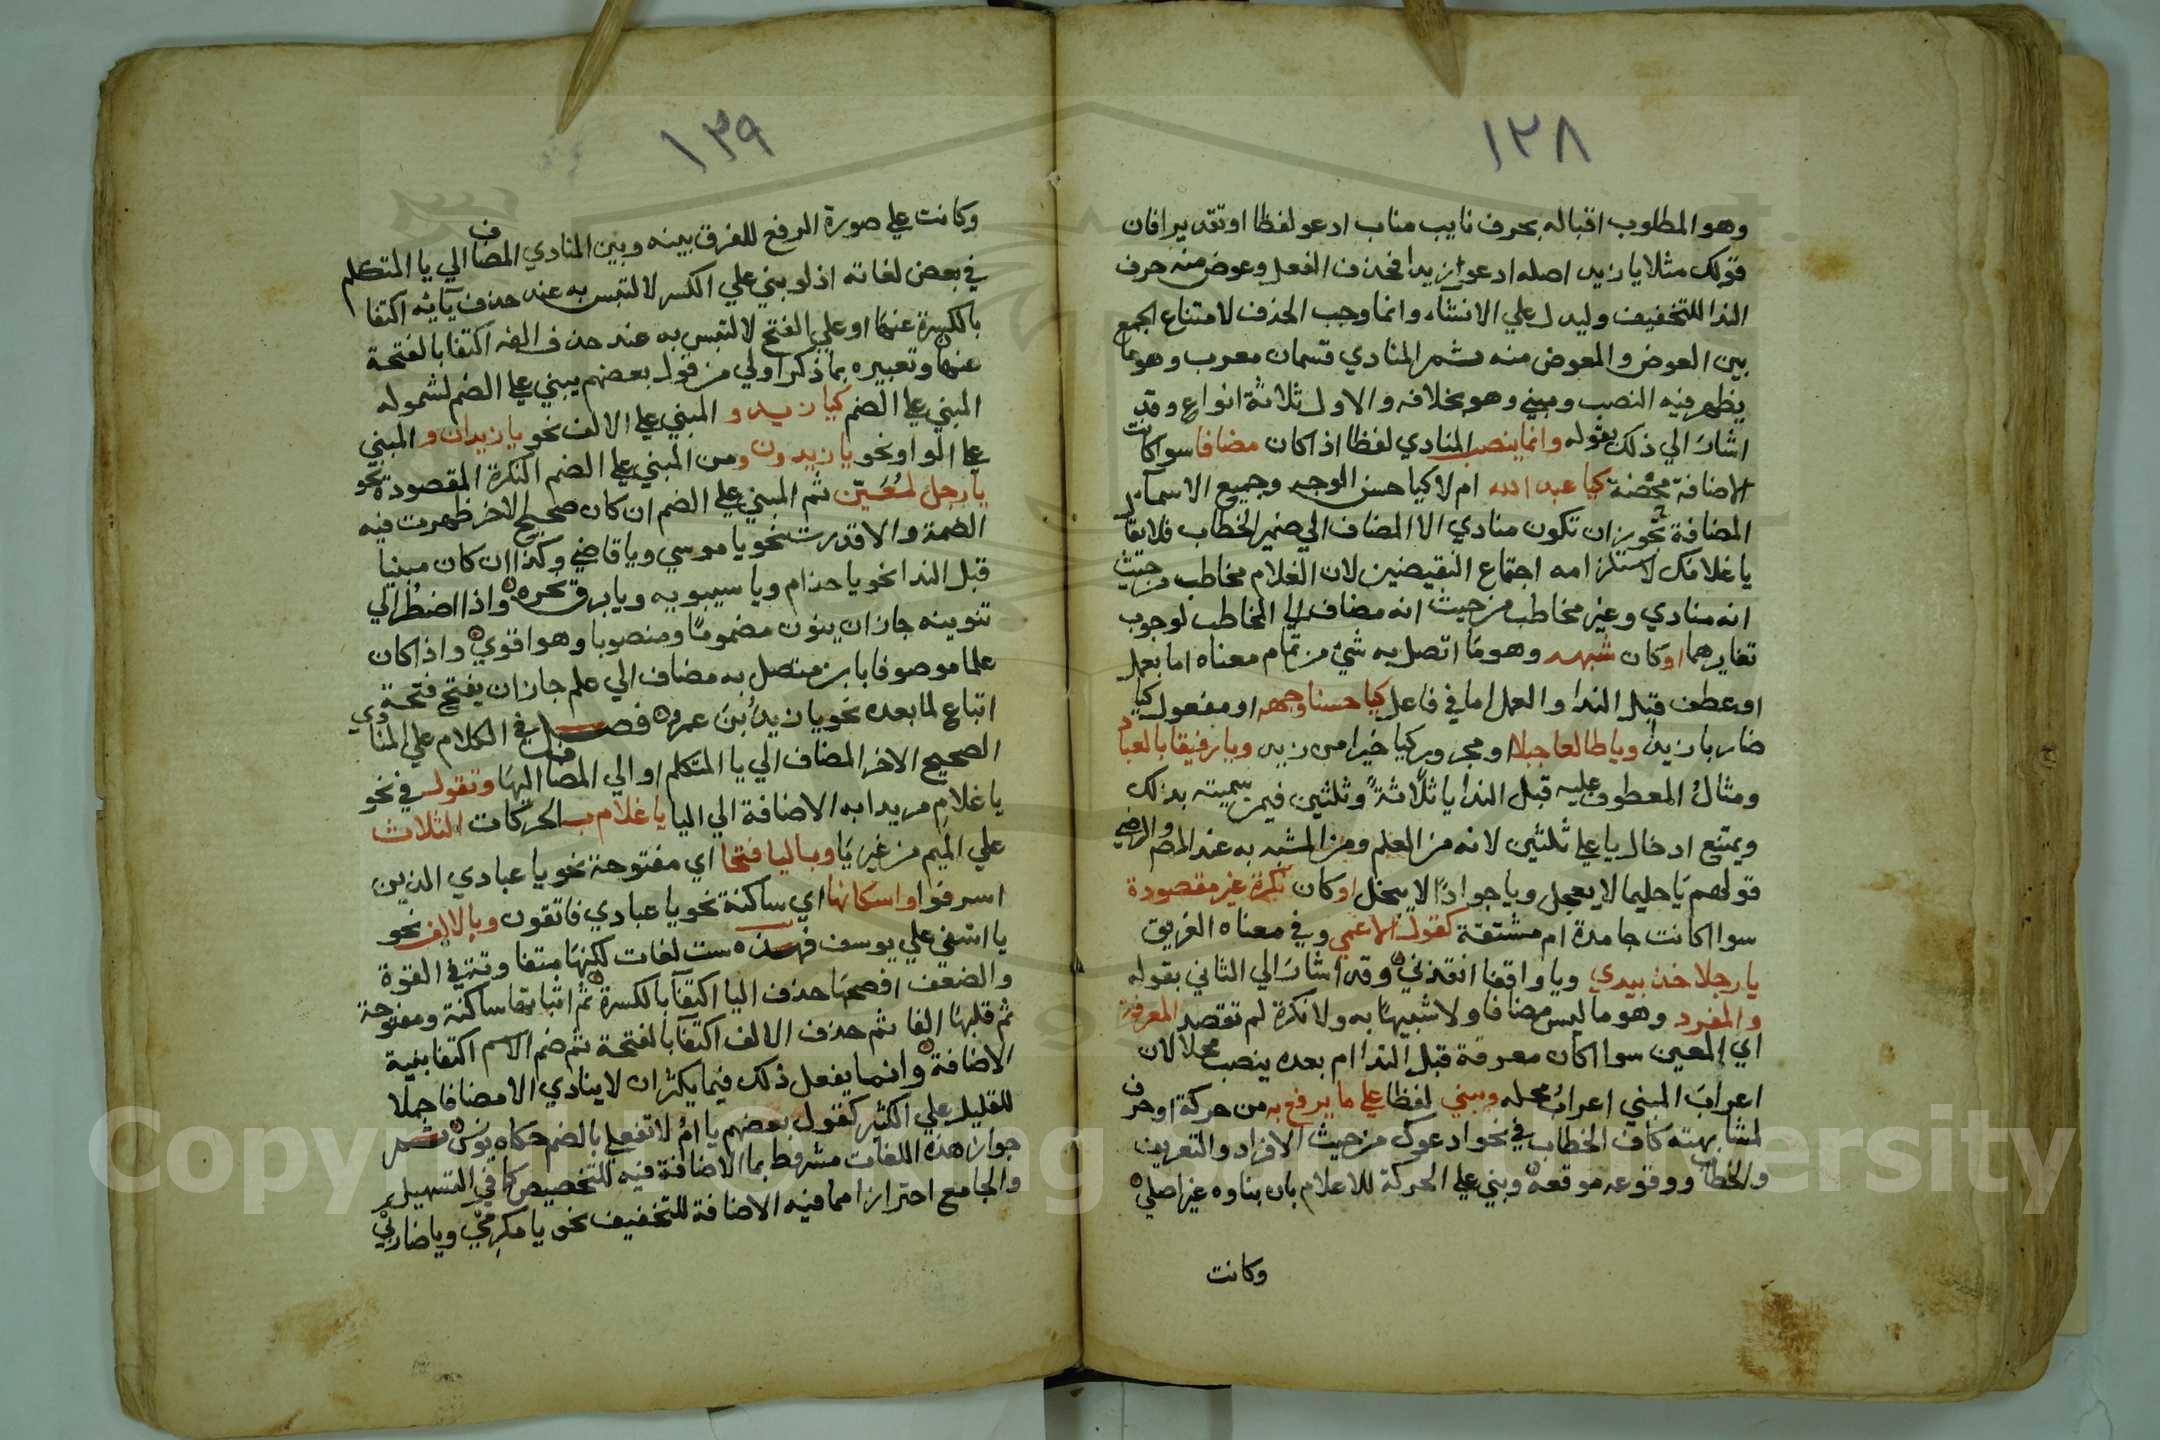 ١٣٨
وهو المطلوب اقباله بحرف نايب مناب ادعو لفظا او تقديرا فان
قولك مثلا يا زيد اصله ادعو زيدا فحذف الفعل وعوض منه حرف
الندا للتخفيف وليدل علي الانشاء وانما وجب الحذف لامتناع الجمع
بين العوض والمعوض منه ثم المنادي قسمان معرب وهو ما
يظهر فيه النصب ومبني وهو بخلافه والاول ثلاثة انواع وقد
اشار الي ذلك بقوله وانما ينصب المنادي لفظا اذا كان مضافا سوا كانت
الاضافة محضة كيا عبد الله ام لا كيا حسن الوجه وجميع الاسماء
المضافة يجوز ان تكون منادي الا المضاف الي ضمير الخطاب فلا يقال
يا غلامك لاستلزامه اجتماع النقيضين لان الغلام مخاطب من حيث
انه منادي وغير مخاطب من حيث انه مضاف الي المخاطب لوجوب
تغايرهما او كان شبهه وهو ما اتصل به شيْ من تمام معناه اما بعمل
او عطف قبل الندا والعمل اما في فاعل كيا حسنا وجهه او مفعول كيا
ضاربا زيدا ويا طالعا جبلا او مجرور كيا خيرا من زيد ويا رفيقا بالعباد
ومثال المعطوف عليه قبل الندا يا ثلاثةً وثلثين فيمن سميته بذلك
ويمتنع ادخال يا علي ثلثين لانه من العلم ومن المشبه به عند المصم والرضي
قولهم يا حليما لا يعجل ويا جوادًا لا يبخل او كان نكرة غير مقصودة
سوا كانت جامدة ام مشتقة كقول الاعمي وفي معناه الغريق
يا رجلا خذ بيدي ويا واقفا انقذني وقد اشار الي الثاني بقوله
والمفرد وهو ما ليس مضافا ولا شبيها به ولا نكرة لم تقصد المعرفة
اي المعين سوا كان معرفة قبل الندا ام بعده ينصب محلا لان
اعراب المبني اعراب محله ويبني لفظا علي ما يرفع به من حركة او حرف
لمشابهته كاف الخطاب في نحو ادعوك من حيث الافراد والتعريف
والخطاب ووقوعه موقعه وبني علي الحركة للاعلام بان بناوه غير اصلي
وكانت
١٣٩
وكانت علي صورة الرفع للفرق بينه وبين المنادي المضاف الي يا المتكلم
في بعض لغاته اذ لو بني علي الكسر لالتبس به عند حذف يائه اكتفا
بالكسرة عنها او علي الفتح لالتبس به عند حذف الفه اكتفا بالفتحة
عنها وتعبيره بما ذكر اولي من قول بعضهم يبني علي الضم لشموله
المبني علي الضم كيا زيد و المبني علي الالف نحو يا زيدان و المبني
علي الواو نحو يا زيدون و من المبني علي الضم النكرة المقصودة نحو
يا رجل لمُعَيّن ثم المبني علي الضم ان كان صحيح الاخر ظهرت فيه
الضمة والا قدرت نحو يا موسي ويا قاضي وكذا ان كان مبنيا
قبل الندا نحو يا حذام ويا سيبويه ويا برق نحره واذا اضطُر الي
تنوينه جاز ان ينون مضموما ومنصوبا وهو اقوي واذا كان
علما موصوفا بابن متصل به مضاف الي علم جاز ان يفتح فتحة
اتباع لما بعده نحو يا زيدَ بنَ عمرو فصل في الكلام علي المنادي
الصحيح الاخر المضاف الي يا المتكلم او الي المضاف اليها وتقول في نحو
يا غلامِ مريدا به الاضافة الي اليا يا غلام بالحركات الثلاث
علي الميم من غير يا وباليا فتحا اي مفتوحة نحو يا عبادي الذين
اسرفوا واسكانها اي ساكنة نحو يا عبادي فاتقون وبالالف نحو
يا اسفي علي يوسف فهذه ست لغات لكنها متفاوتة في القوة
والضعف افصحها حذف اليا اكتفا بالكسرة ثم اثباتها ساكنة ومفتوحة
ثم قلبها الفا ثم حذف الالف اكتفا بالفتحة ثم ضم الاسم اكتفا بنية
الاضافة وانما يفعل ذلك فيما يكثر ان لا ينادي الا مضافا حملا
للقليل علي الكثير كقول بعضهم يا امُ لا تفعلي بالضم حكاه يونس ثم
جواز هذه اللغات مشروط بما الاضافة فيه للتخصيص كما في التسهيل
والجامع احترازا مما فيه الاضافة للتخفيف نحو يا مكرميْ ويا ضاربيْ